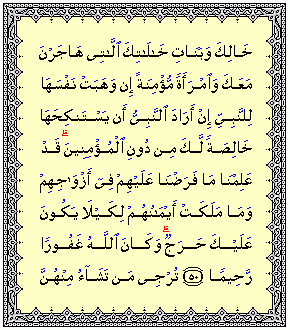 خَالِكَ وَبَنَاتِ خَـٰلَـٰتِكَ ٱلَّـٰتِى هَاجَرْنَ
مَعَكَ وَٱمْرَأَةً مُّؤْمِنَةً إِن وَهَبَتْ نَفْسَهَا
لِلنَّبِىِّ إِنْ أَرَادَ ٱلنَّبِىُّ أَن يَسْتَنكِحَهَا
خَالِصَةً لَّكَ مِن دُونِ ٱلْمُؤْمِنِينَ ۗ قَدْ
عَلِمْنَا مَا فَرَضْنَا عَلَيْهِمْ فِىٓ أَزْوَٰجِهِمْ
وَمَا مَلَكَتْ أَيْمَـٰنُهُمْ لِكَيْلَا يَكُونَ
عَلَيْكَ حَرَجٌ ۗ وَكَانَ ٱللَّهُ غَفُورًا
رَّحِيمًا ﴿٥٠﴾ تُرْجِى مَن تَشَآءُ مِنْهُنَّ